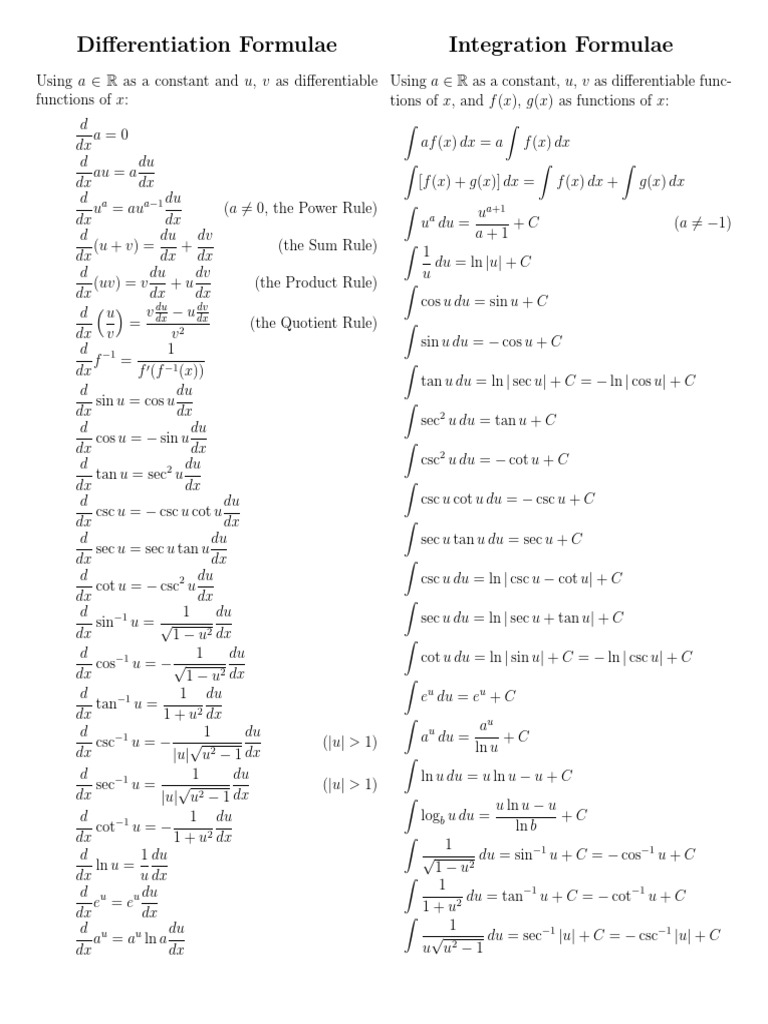 Differentiation Formulae
Using a ∈ ℝ as a constant and u, v as differentiable
functions of x:
d/dx a = 0
d/dx au = a du/dx
d/dx u^a = au^(a−1) du/dx (a ≠ 0, the Power Rule)
d/dx (u + v) = du/dx + dv/dx (the Sum Rule)
d/dx (uv) = v du/dx + u dv/dx (the Product Rule)
d/dx (u/v) = (v du/dx − u dv/dx)/v² (the Quotient Rule)
d/dx f⁻¹ = 1/(f′(f⁻¹(x)))
d/dx sin u = cos u du/dx
d/dx cos u = − sin u du/dx
d/dx tan u = sec² u du/dx
d/dx csc u = − csc u cot u du/dx
d/dx sec u = sec u tan u du/dx
d/dx cot u = − csc² u du/dx
d/dx sin⁻¹ u = 1/√(1 − u²) du/dx
d/dx cos⁻¹ u = − 1/√(1 − u²) du/dx
d/dx tan⁻¹ u = 1/(1 + u²) du/dx
d/dx csc⁻¹ u = − 1/(|u|√(u² − 1)) du/dx (|u| > 1)
d/dx sec⁻¹ u = 1/(|u|√(u² − 1)) du/dx (|u| > 1)
d/dx cot⁻¹ u = − 1/(1 + u²) du/dx
d/dx ln u = 1/u du/dx
d/dx e^u = e^u du/dx
d/dx a^u = a^u ln a du/dx
Integration Formulae
Using a ∈ ℝ as a constant, u, v as differentiable func-
tions of x, and f(x), g(x) as functions of x:
∫ af(x) dx = a ∫ f(x) dx
∫ [f(x) + g(x)] dx = ∫ f(x) dx + ∫ g(x) dx
∫ u^a du = u^(a+1)/(a + 1) + C (a ≠ −1)
∫ 1/u du = ln |u| + C
∫ cos u du = sin u + C
∫ sin u du = − cos u + C
∫ tan u du = ln | sec u| + C = − ln | cos u| + C
∫ sec² u du = tan u + C
∫ csc² u du = − cot u + C
∫ csc u cot u du = − csc u + C
∫ sec u tan u du = sec u + C
∫ csc u du = ln | csc u − cot u| + C
∫ sec u du = ln | sec u + tan u| + C
∫ cot u du = ln | sin u| + C = − ln | csc u| + C
∫ e^u du = e^u + C
∫ a^u du = a^u/ln u + C
∫ ln u du = u ln u − u + C
∫ log_b u du = (u ln u − u)/ln b + C
∫ 1/√(1 − u²) du = sin⁻¹ u + C = − cos⁻¹ u + C
∫ 1/(1 + u²) du = tan⁻¹ u + C = − cot⁻¹ u + C
∫ 1/(u√(u² − 1)) du = sec⁻¹ |u| + C = − csc⁻¹ |u| + C